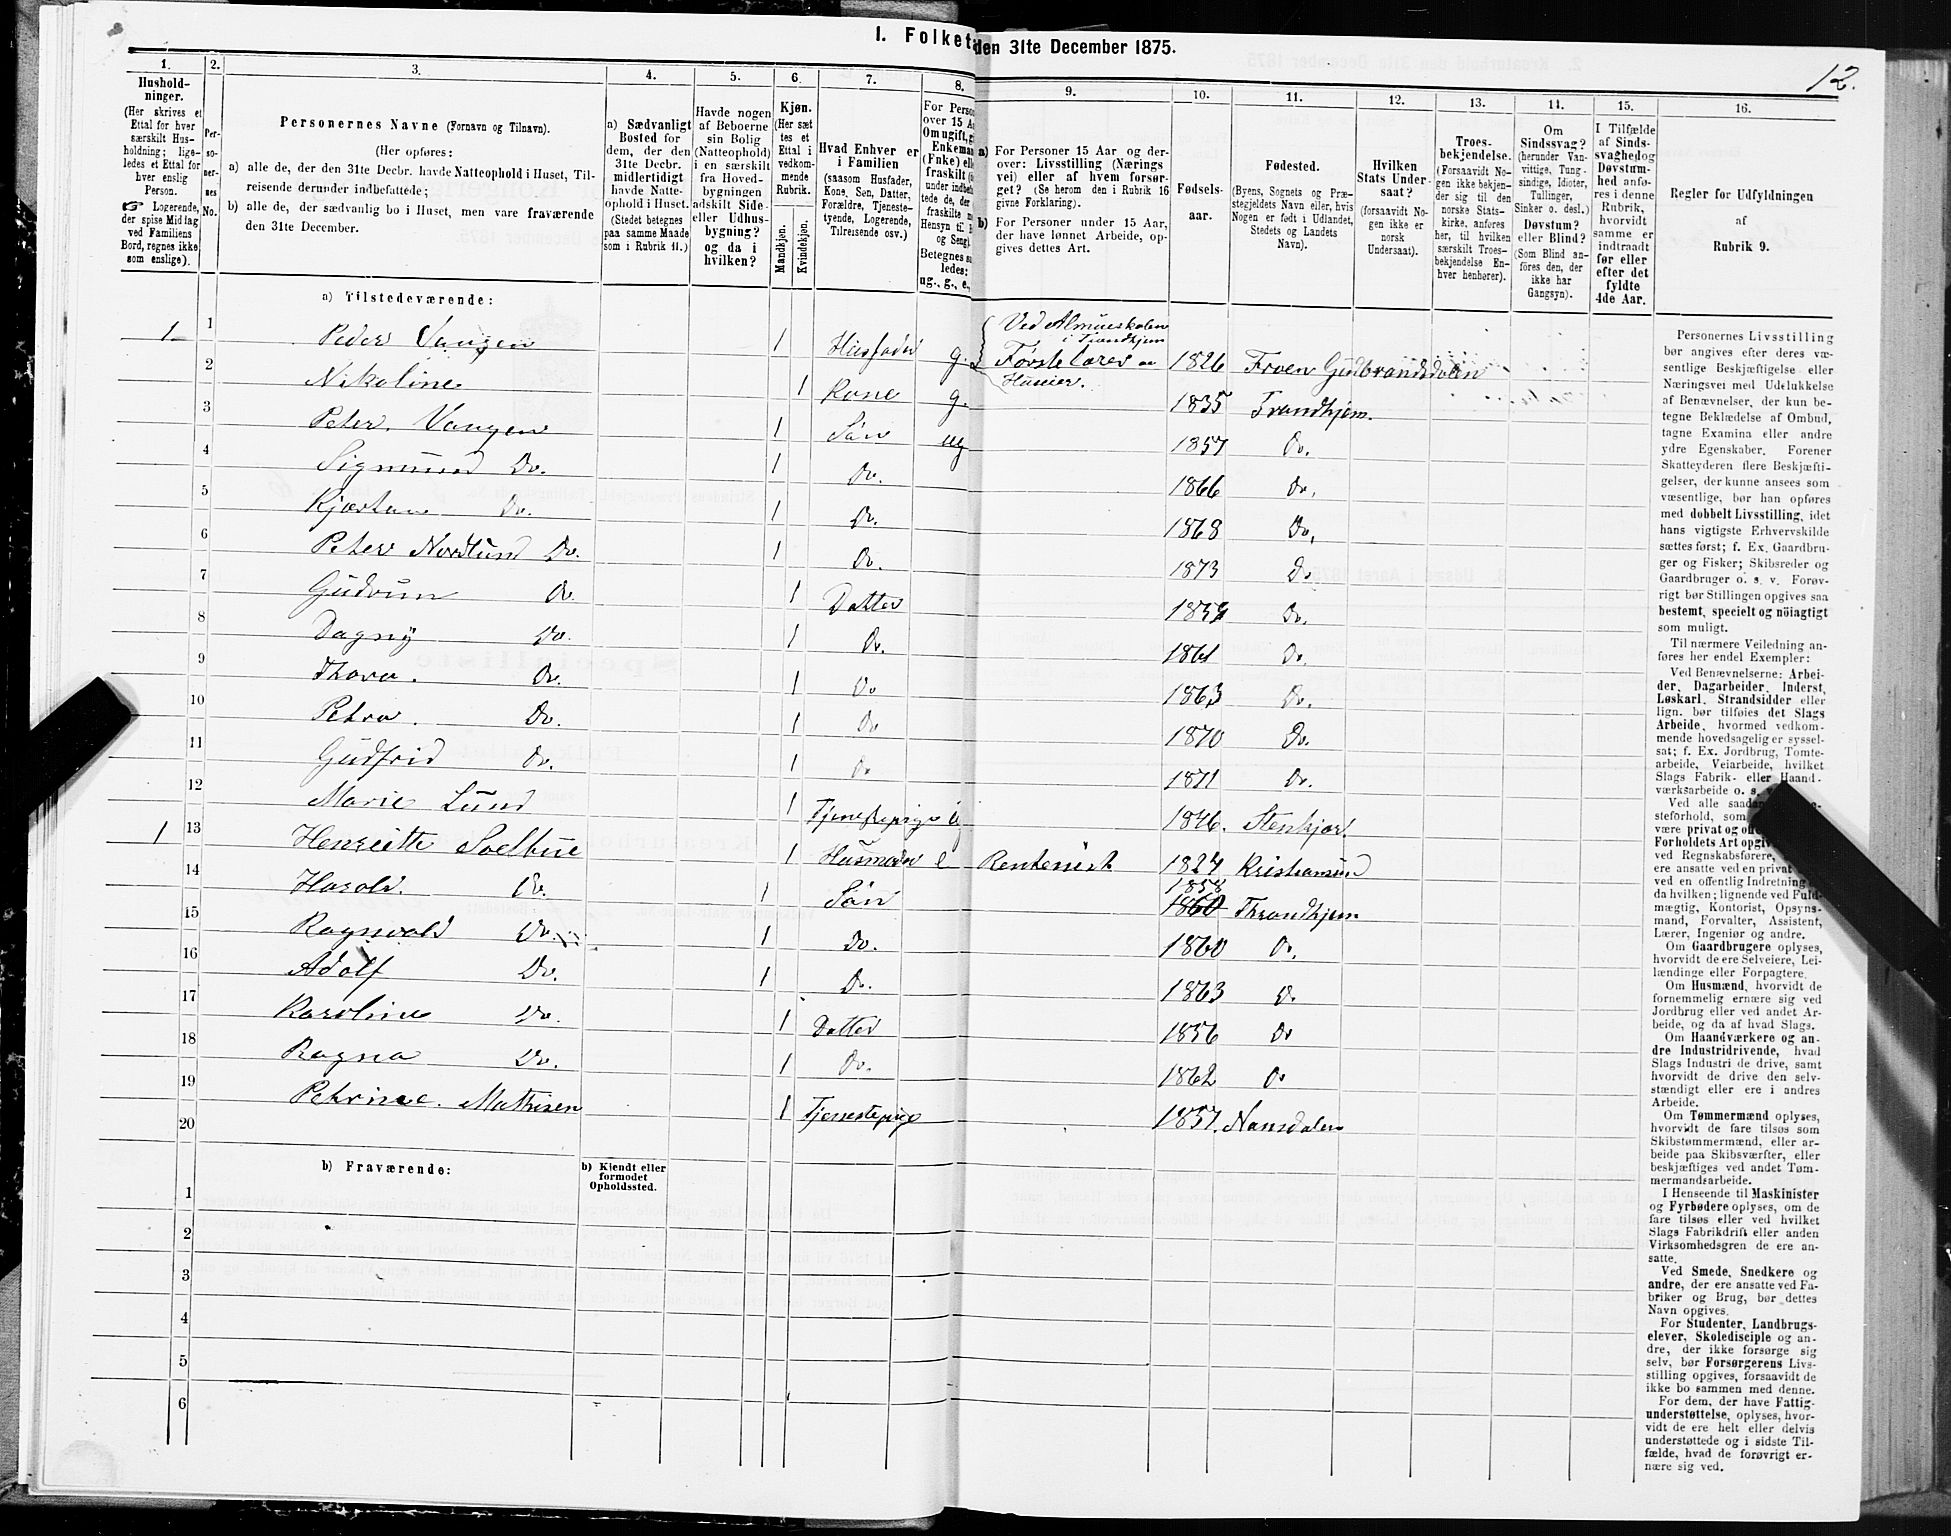 I. Folket
den 31te December 1875.
12.
1.
Hushold-
ninger.
(Her skrives et
Ettal for hver
særskilt Hus-
holdning; lige-
ledes et Ettal for
hver enslig
Person.
☞ Logerende,
der spise Middag
ved Familiens
Bord, regnes ikke
som enslige).
2.
Per-
so-
ner-
nes
No.
3.
Personernes Navne (Fornavn og Tilnavn).
(Her opføres:
a) alle de, der den 31te Decbr. havde Natteophold i Huset, Til-
reisende derunder indbefattede;
b) alle de, der sædvanlig bo i Huset, men vare fraværende
den 31te December.
4.
a) Sædvanligt
Bosted for
dem, der den
31te Decbr.
midlertidigt
havde Natte-
ophold i Huset.
(Stedet betegnes
paa samme Maade
som i Rubrik 11.)
5.
Havde nogen
af Beboerne
sin Bolig
(Natteophold)
i en særskilt
fra Hoved-
bygningen
adskilt Side-
eller Udhus-
bygning?
og da i
hvilken?
6.
Kjøn.
(Her sæt-
tes et
Ettal i
vedkom-
mende
Rubrik.
Mandkjøn.
Kvindekjøn.
7.
Hvad Enhver er
i Familien
(saasom Husfader,
Kone, Søn, Datter,
Forældre, Tjeneste-
tyende, Logerende,
Tilreisende osv.)
8.
For Person
over 15 A
Om ugift, g
Enkeman
(Fnke) elle
fraskilt (
under indbe
tede de, der
fraskilte
Hensyn til
og Seng).
Betegnes saa
ledes:
ug., g., e.,
9.
a) For Personer 15 Aar og der-
over: Livsstilling (Nærings-
vei) eller af hvem forsør-
get? (Se herom den i Rubrik 16
givne Forklaring).
b) For Personer under 15 Aar,
der have lønnet Arbeide, op-
gives dettes Art.
10.
Fødsels-
aar.
11.
Fødested.
(Byens, Sognets og Præ-
stegjeldets Navn eller, hvis
Nogen er født i Udlandet,
Stedets og Landets
Navn).
12.
Hvilken
Stats Under-
saat?
(forsaavidt No-
gen ikke er
norsk
Undersaat).
13.
Troes-
bekjendelse.
(Forsaavidt No-
gen ikke bekjen-
der sig til den
norske Stats-
kirke, anføres
her, til hvilken
særskilt Troes-
bekjendelse En-
hver henhører).
14.
Om
Sindssvag?
(herunder Van-
vittige, Tung-
sindige, Idioter,
Tullinger,
Sinker o. desl.)
Døvstum?
eller Blind?
(Som Blind an-
føres den, der
ikke har
Gangsyn).
15.
I Tilfælde
af Sinds-
svaghed og
Døvstum-
hed anfø-
res i denne
Rubrik,
hvorvidt
samme er
indtraadt
før eller
efter det
fyldte
4de Aar.
16.
Regler for Udfyldningen
af
Rubrik 9.
a) Tilstedeværende:
1 1 Peder Vangen 1 Husfader g. Ved Almueskolen i Trondhjem Første Lærer Huseier. 1826 Froen Gudbrandsdalen
2 Nikoline 1 Kone g. 1835 Trondhjem.
3 Peter Vangen 1 Søn ug 1857 Do.
4 Sigmund Do. 1 Do. 1866 Do.
5 Kjartan Do. 1 Do. 1868 Do.
6 Peter Nordlund Do. 1 Do. 1873 Do
7 Gudrun Do. 1 Datter 1859 Do.
8 Dagny Do. 1 Do. 1861 Do.
9 Thora. Do. 1 Do 1863 Do.
10 Petra. Do. 1 Do 1870 Do.
11 Gudfrid Do. 1 Do 1871 Do.
12 Marie Lund 1 Tjenestepige 1846. Stenkjær.
1 13 Henriette Soelbue 1 Husmoder e Rentenist 1824 Kristiansund
14 Harald Do. 1 Søn 1858 1860 Throndhjem
15 Ragnvald Do. 1 Do. 1860 Do.
16 Adolf Do. 1 Do. 1863 Do
17 Karoline Do. 1 Datter 1856 Do
18 Ragna Do. 1 Do. 1862 Do
19 Petrine. Mathisen 1 Tjenestepige 1857. Namsdalen
20
b) Fraværende:
b) Kjendt eller
formodet
Opholdssted.
1
2
3
4
5
6
Personernes Livsstilling
bør angives efter deres væ-
sentlige Beskjæftigelse eller
Næringsvei med Udelukkelse
af Benævnelser, der kun be-
tegne Beklædelse af Ombud,
tagne Examina eller andre
ydre Egenskaber. Forener
Skatteyderen flere Beskjæfti-
gelser, der kunne ansees som
væsentlige, bør han opføres
med dobbelt Livsstilling, idet
hans vigtigste Erhvervskilde
sættes først; f. Ex. Gaardbru-
ger og Fisker; Skibsreder og
Gaardbruger o. s. v. Forøv-
rigt bør Stillingen opgives saa
bestemt, specielt og nöiagtigt
som muligt.
Til nærmere Veiledning an-
føres her endel Exempler:
Ved Benævnelserne: Arbei-
der, Dagarbeider, Inderst,
Løskarl, Strandsidder eller
lign. bør tilføies det Slags
Arbeide, hvormed vedkom-
mende hovedsagelig er syssel-
sat; f. Ex. Jordbrug, Tomte-
arbeide, Veiarbeide, hvilket
Slags Fabrik- eller Haand-
værksarbeide o. s. v.
Ved alle saadan
steforhold, som
være privat og off
Forholdets Art opgiv
ved Regnskabsførere,
ere ansatte ved en privat
ved en offentlig Indretning
da hvilken; lignende ved Fuld-
mægtig, Kontorist, Opsyns-
mand, Forvalter, Assistent,
Lærer, Ingeniør og andre.
Om Gaardbrugere oplyses,
hvorvidt de ere Selveiere, Lei-
lændinge eller Forpagtere.
Om Husmænd, hvorvidt de
fornemmelig ernære sig ved
Jordbrug eller ved andet Ar-
beide, og da af hvad Slags.
Om Haandværkere og an-
dre Industridrivende, hvad
Slags Industri de drive, samt
hvorvidt de drive den selv-
stændigt eller ere i andres
Arbeide.
Om Tømmermænd oplyses,
hvorvidt de fare tilsøs som
Skibstømmermænd, eller ar-
beide paa Skibsværfter, eller
beskjæftiges ved andet Tøm-
mermandsarbeide.
I Henseende til Maskinister
og Fyrbødere oplyses, om de
fare tilsøs eller ved hvilket
Slags Fabrikdrift eller anden
Virksomhedsgren de ere an-
satte.
Ved Smede, Snedkere og
andre, der ere ansatte ved Fa-
briker og Brug, bør dettes
Navn opgives.
For Studenter, Landbrugs-
elever, Skoledisciple og an-
dre, der ikke forsørge sig
selv, bør Forsørgerens Livs-
stilling opgives, forsaavidt de
ikke bo sammen med denne.
For dem, der have Fattig-
understøttelse, oplyses, hvor-
vidt de ere helt eller delvis
understøttede og i sidste Til-
fælde, hvad de forøvrigt er-
nære sig ved.